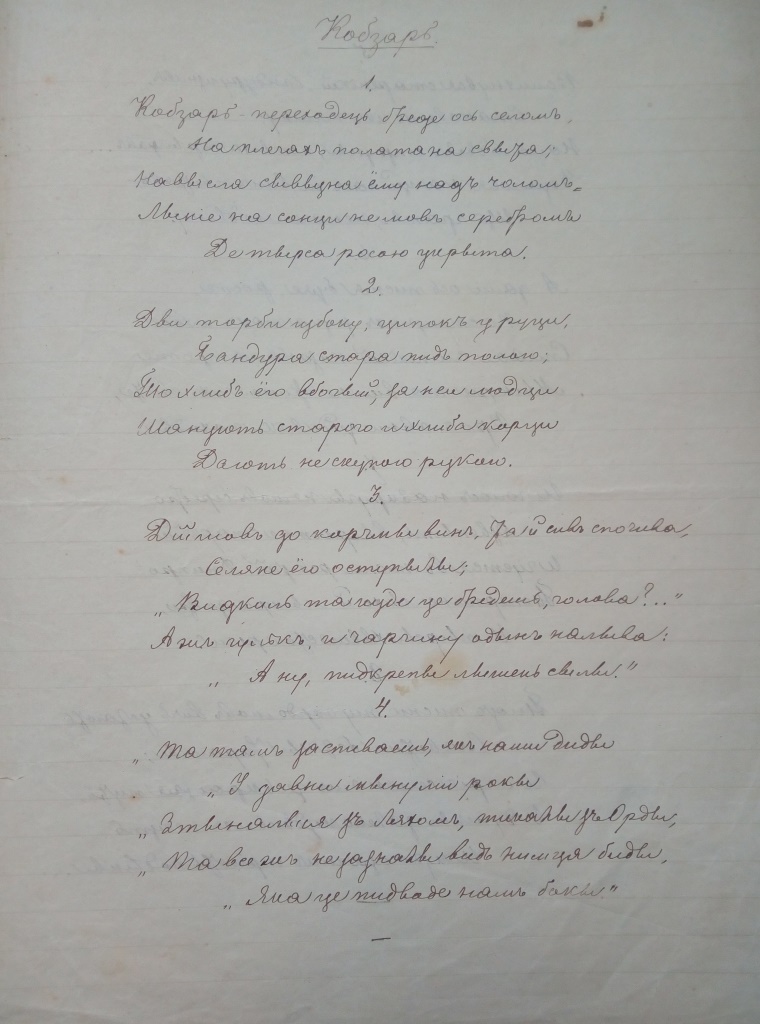 Кобзарь.
1.
Кобзарь-перехадець бреде ось селомъ,
На плечахъ полатана свыта;
Нависла свыввна ёму надъ чоломъ
Мыніе на сонци немовъ серебромъ
Де тырса росою укрыта.
2.
Дви торби избоку, ципокъ у руци,
Бандура стара пидъ полою;
То хлибъ ёго вбогый; за неи людци
Шанують старого и хлиба карци
Дають не скупою рукою.
3.
Дійшовъ до карчмы винъ, та й сивъ спочива,
Селяне ёго оступылы;
„Видкиль та куде це бредешъ, голова?.."
Ажъ гулкъ, и чарчину одынъ налыва:
„А ну, пидкрепы лышень свылы."
4.
„Та тамъ заспиваешъ, якъ наши диды
„У давни мынулы рокы
„Зтыналыся зъ Ляхомъ, тикалы зъ Орды,
„Та все жъ не зазналы видъ нимця биды,
„Яка це пидваде намъ бокы."